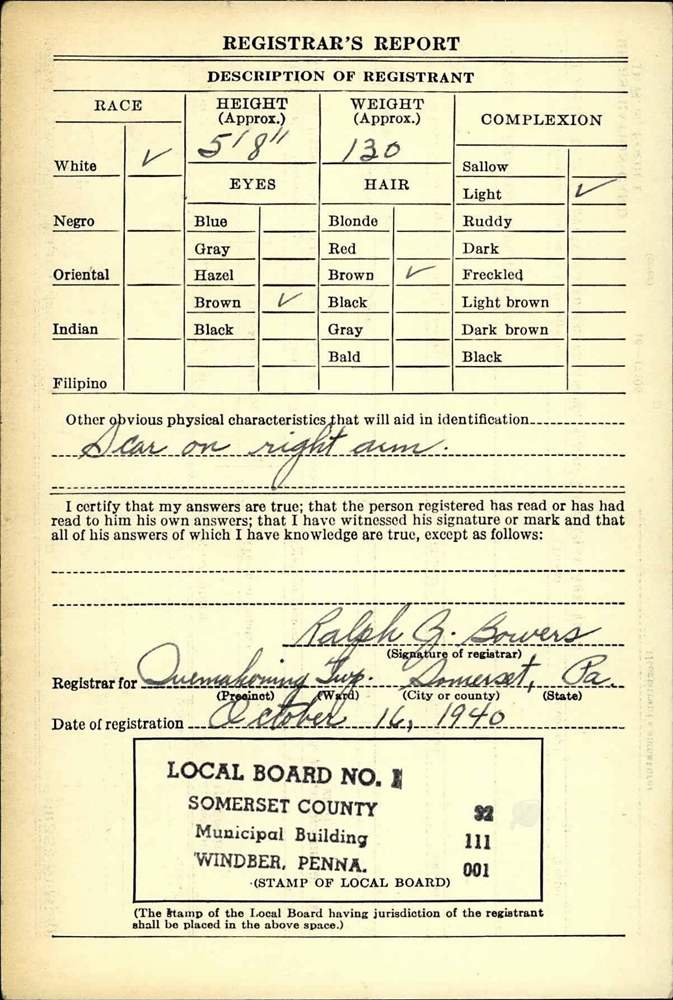 REGISTRAR'S REPORT
DESCRIPTION OF REGISTRANT
RACE
HEIGHT (Approx.)
WEIGHT (Approx.)
COMPLEXION
5'8"
130
White ✓
Sallow
EYES
HAIR
Light ✓
Negro
Blue
Blonde
Ruddy
Gray
Red
Dark
Oriental
Hazel
Brown ✓
Freckled
Brown ✓
Black
Light brown
Indian
Black
Gray
Dark brown
Bald
Black
Filipino
Other obvious physical characteristics that will aid in identification
Scar on right arm.
I certify that my answers are true; that the person registered has read or has had
read to him his own answers; that I have witnessed his signature or mark and that
all of his answers of which I have knowledge are true, except as follows:
Ralph Bowers
(Signature of registrar)
Registrar for Quemahoning Twp. Somerset, Pa.
(Precinct) (Ward) (City or county) (State)
Date of registration October 16, 1940
LOCAL BOARD NO. 1
SOMERSET COUNTY 32
Municipal Building 111
WINDBER, PENNA. 001
(STAMP OF LOCAL BOARD)
(The stamp of the Local Board having jurisdiction of the registrant
shall be placed in the above space.)